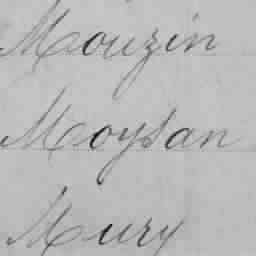 Mouzin
Moysan
Mury